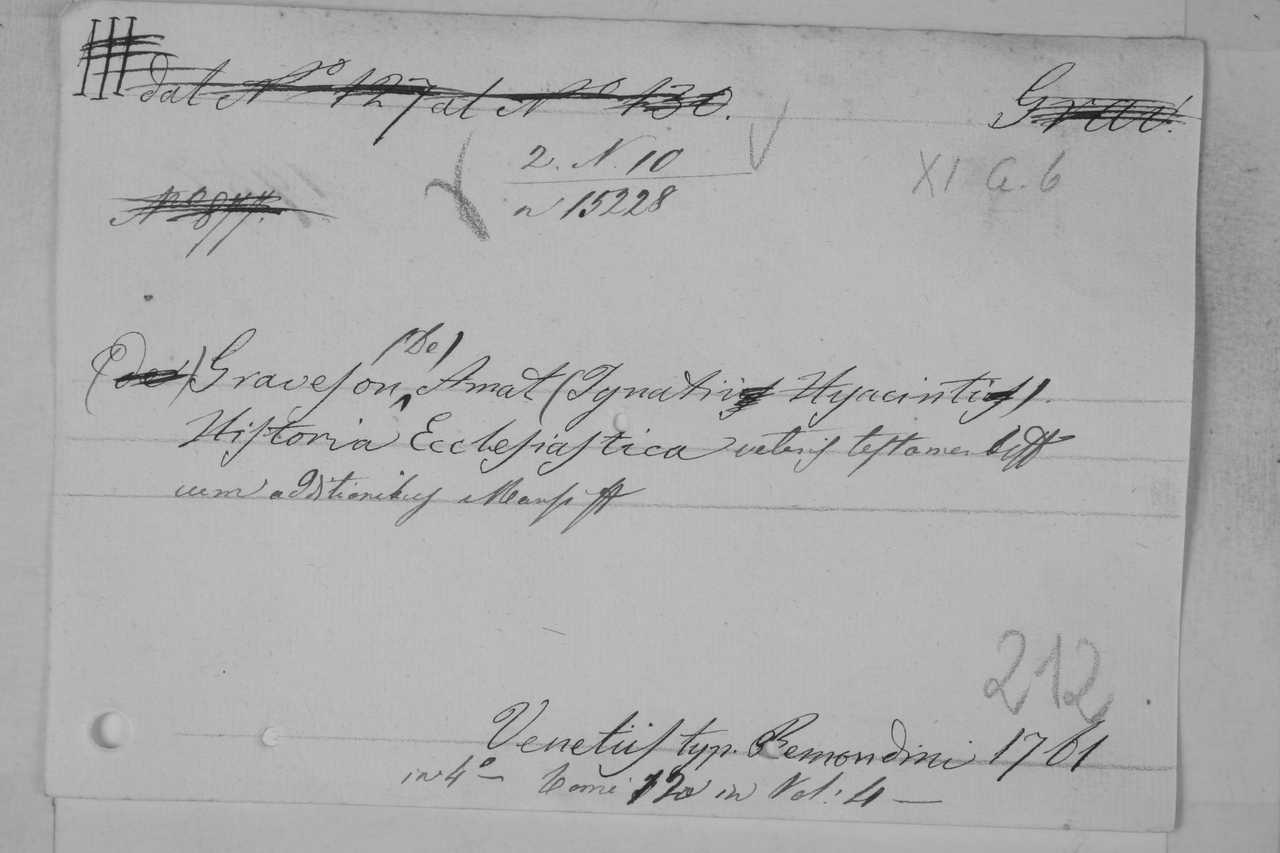 III dal N° 127 al N° 130.
2. N. 10
XI G. 6
n 15228
N° 877.
(De) Graveson, (De) Amat (Ignatii Hyacinti).
Historia Ecclesiastica veteris testamen
cum additionibus Mansi
212
Venetiis typ. Remondini 1761
in 4° Tomi 12 in Vol: 4 —